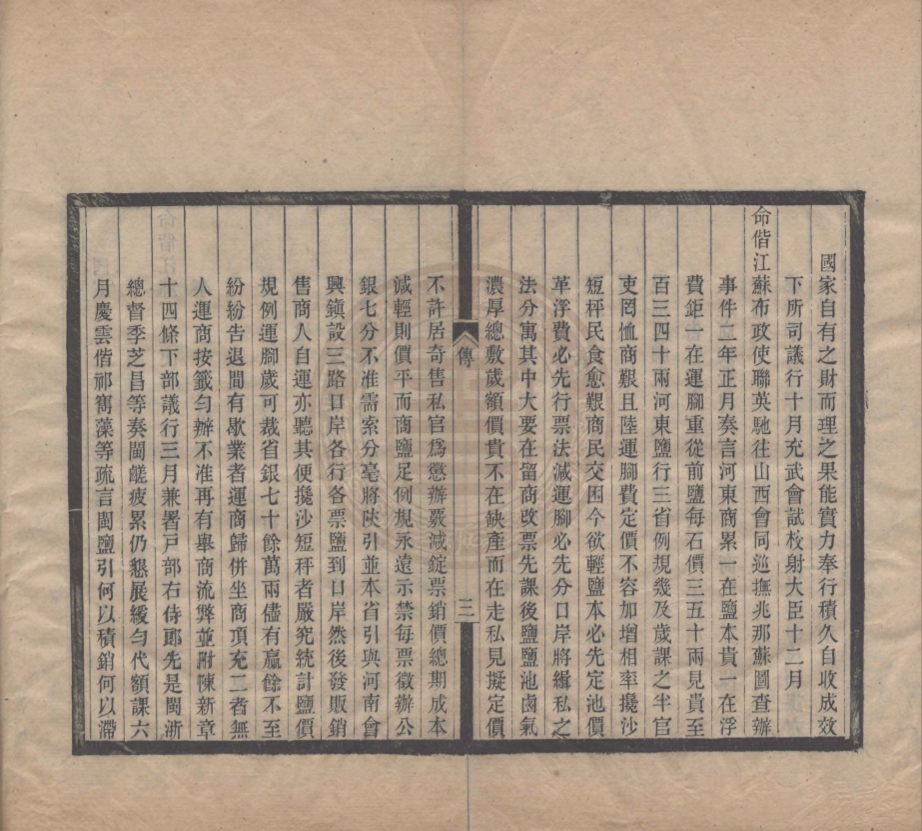 國家自有之財而理之果能實力奉行積久自收成效
下所司議行十月充武會試校射大臣十二月
命偕江蘇布政使聯英馳往山西會同巡撫兆那蘇圖查辦
事件二年正月奏言河東商累一在鹽本貴一在浮
費鉅一在運腳重從前鹽每石價三五十兩見貴至
百三四十兩河東鹽行三省例規幾及歲課之半官
吏罔恤商艱且陸運腳費定價不容加增相率攙沙
短秤民食愈艱商民交困今欲輕鹽本必先定池價
革浮費必先行票法減運腳必先分口岸將緝私之
法分寓其中大要在留商改票先課後鹽鹽池鹵氣
濃厚總敷歲額價貴不在缺產而在走私見擬定價
傳
三
不許居奇售私官爲懲辦覈減錠票銷價總期成本
減輕則價平而商鹽足例規永遠示禁每票徵辦公
銀七分不准需索分毫將陝引並本省引與河南會
興鎮設三路口岸各行各票鹽到口岸然後發販銷
售商人自運亦聽其便攙沙短秤者嚴究統計鹽價
規例運腳歲可裁省銀七十餘萬兩儘有贏餘不至
紛紛告退間有歇業者運商歸併坐商頂充二者無
人運商按籤勻辦不准再有舉商流弊並附陳新章
十四條下部議行三月兼署戸部右侍郎先是閩浙
總督季芝昌等奏閩鹺疲累仍懇展緩勻代額課六
月慶雲偕祁寯藻等疏言閩鹽引何以積銷何以滯